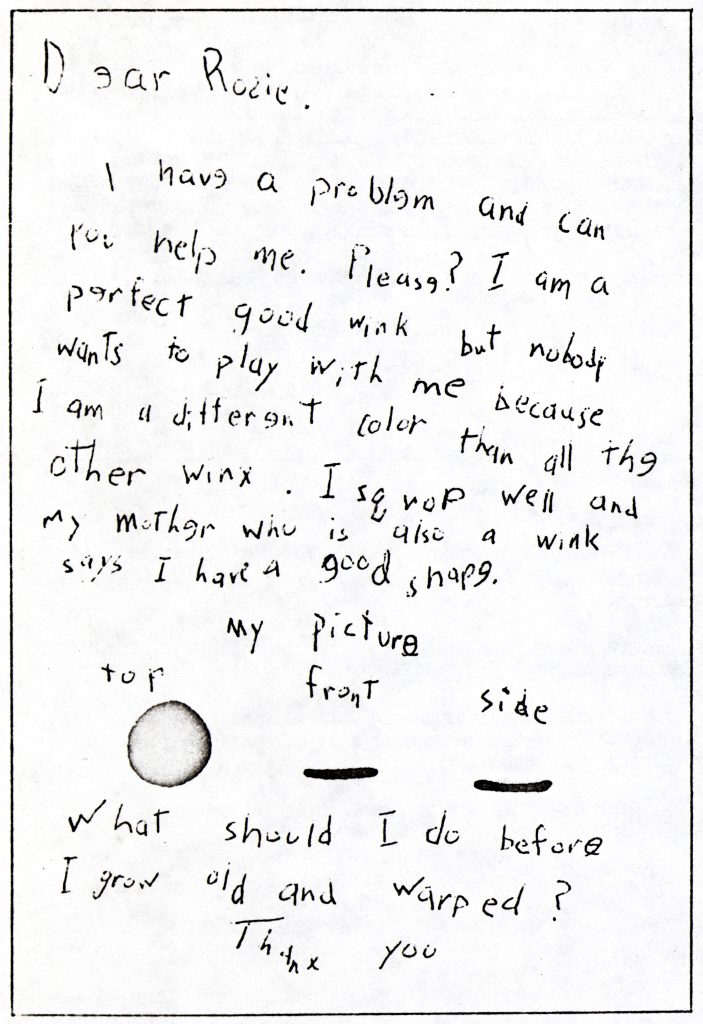 Dear Rozie.
I have a problem and can
you help me. Please? I am a
perfect good wink but nobody
wants to play with me because
I am a different color than all the
other winx. I squop well and
my mother who is also a wink
says I have a good shape.
My picture
top front side
What should I do before
I grow old and warped?
Thanx you